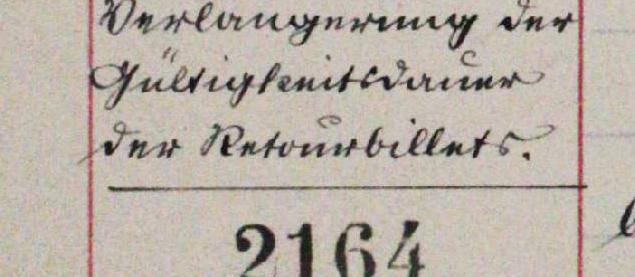 Verlängerung der
Gültigkeitsdauer
der Retourbillets.
2164